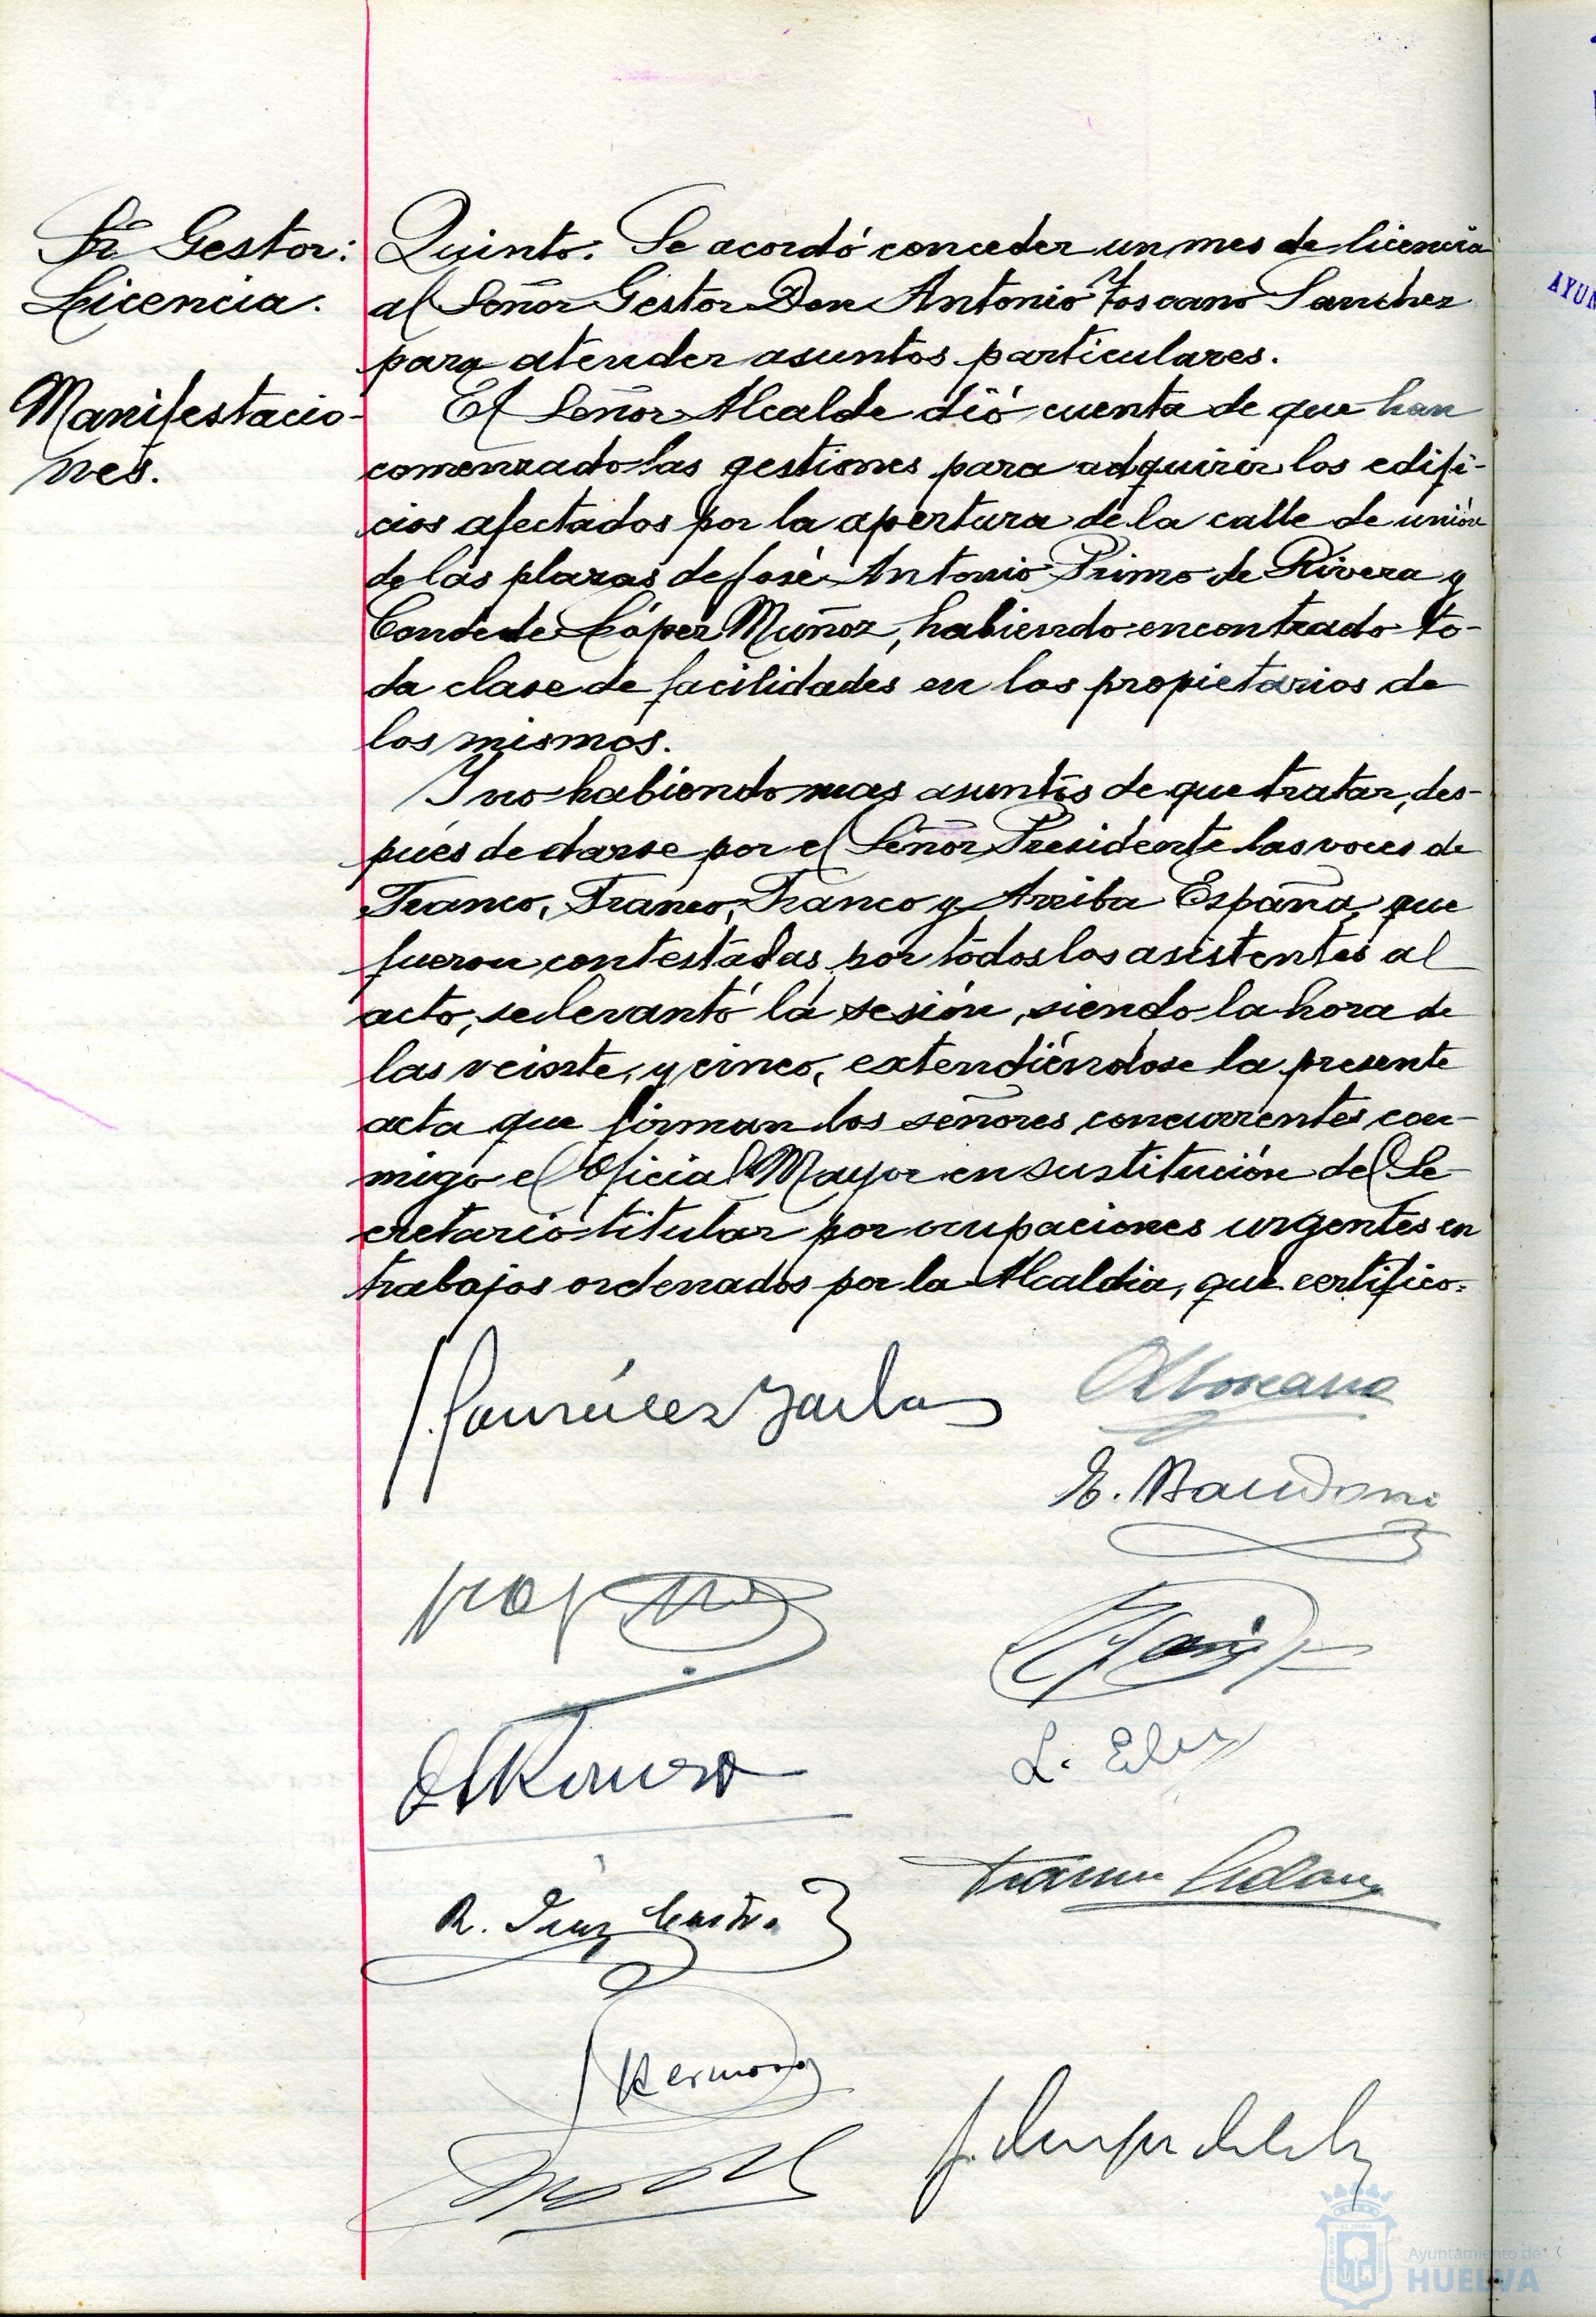 Sr. Gestor:
Licencia.
Quinto. Se acordó conceder un mes de licencia
al Señor Gestor Don Antonio Toscano Sanchez
para atender asuntos particulares.
Manifestacio-
nes.
El Señor Alcalde dió cuenta de que han
comenzado las gestiones para adquirir los edifi-
cios afectados por la apertura de la calle de unión
de las plazas de José Antonio Primo de Rivera y
Conde de López Muñoz, habiendo encontrado to-
da clase de facilidades en los propietarios de
los mismos.
Y no habiendo mas asuntos de que tratar, des-
pués de darse por el Señor Presidente las voces de
Franco, Franco, Franco y Arriba España, que
fueron contestadas por todos los asistentes al
acto, se levantó la sesión, siendo la hora de
las veinte y cinco, extendiéndose la presente
acta que firman los señores concurrentes con-
migo el Oficial Mayor en sustitución del Se-
cretario titular por ocupaciones urgentes en
trabajos ordenados por la Alcaldia, que certifico.
AToscano
Ayuntamiento de
HUELVA
AYUN